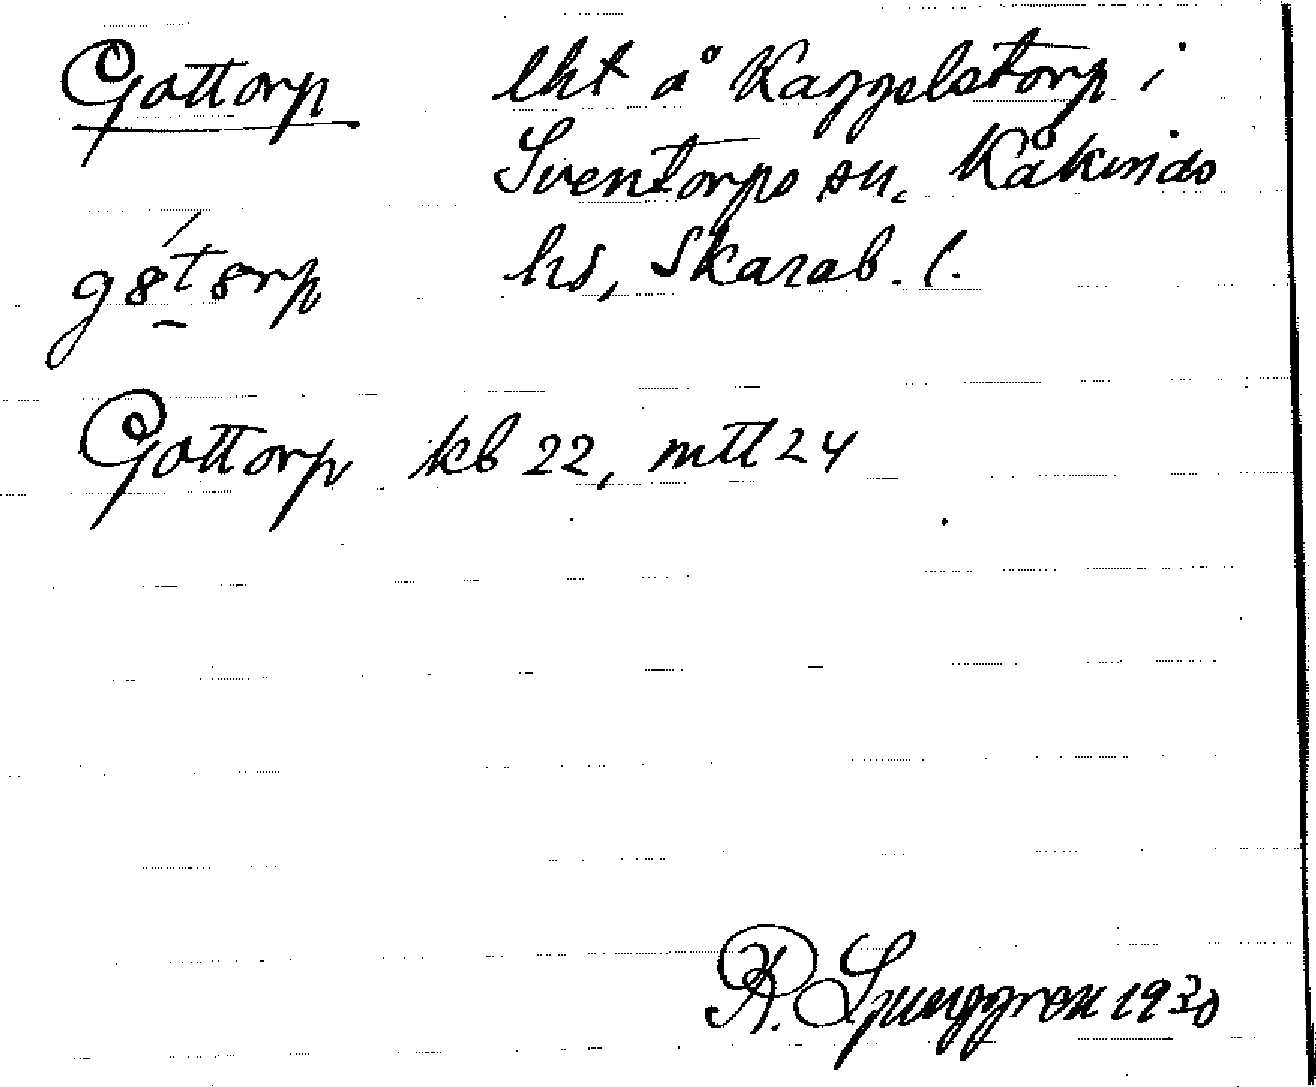 Gottorp lht å Kaggelstorp i
Sventorps sn. Kåkinds
g8t8rp hd, Skarab. l.
Gottorp kb 22, mtl 24
R. Ljunggren 1930